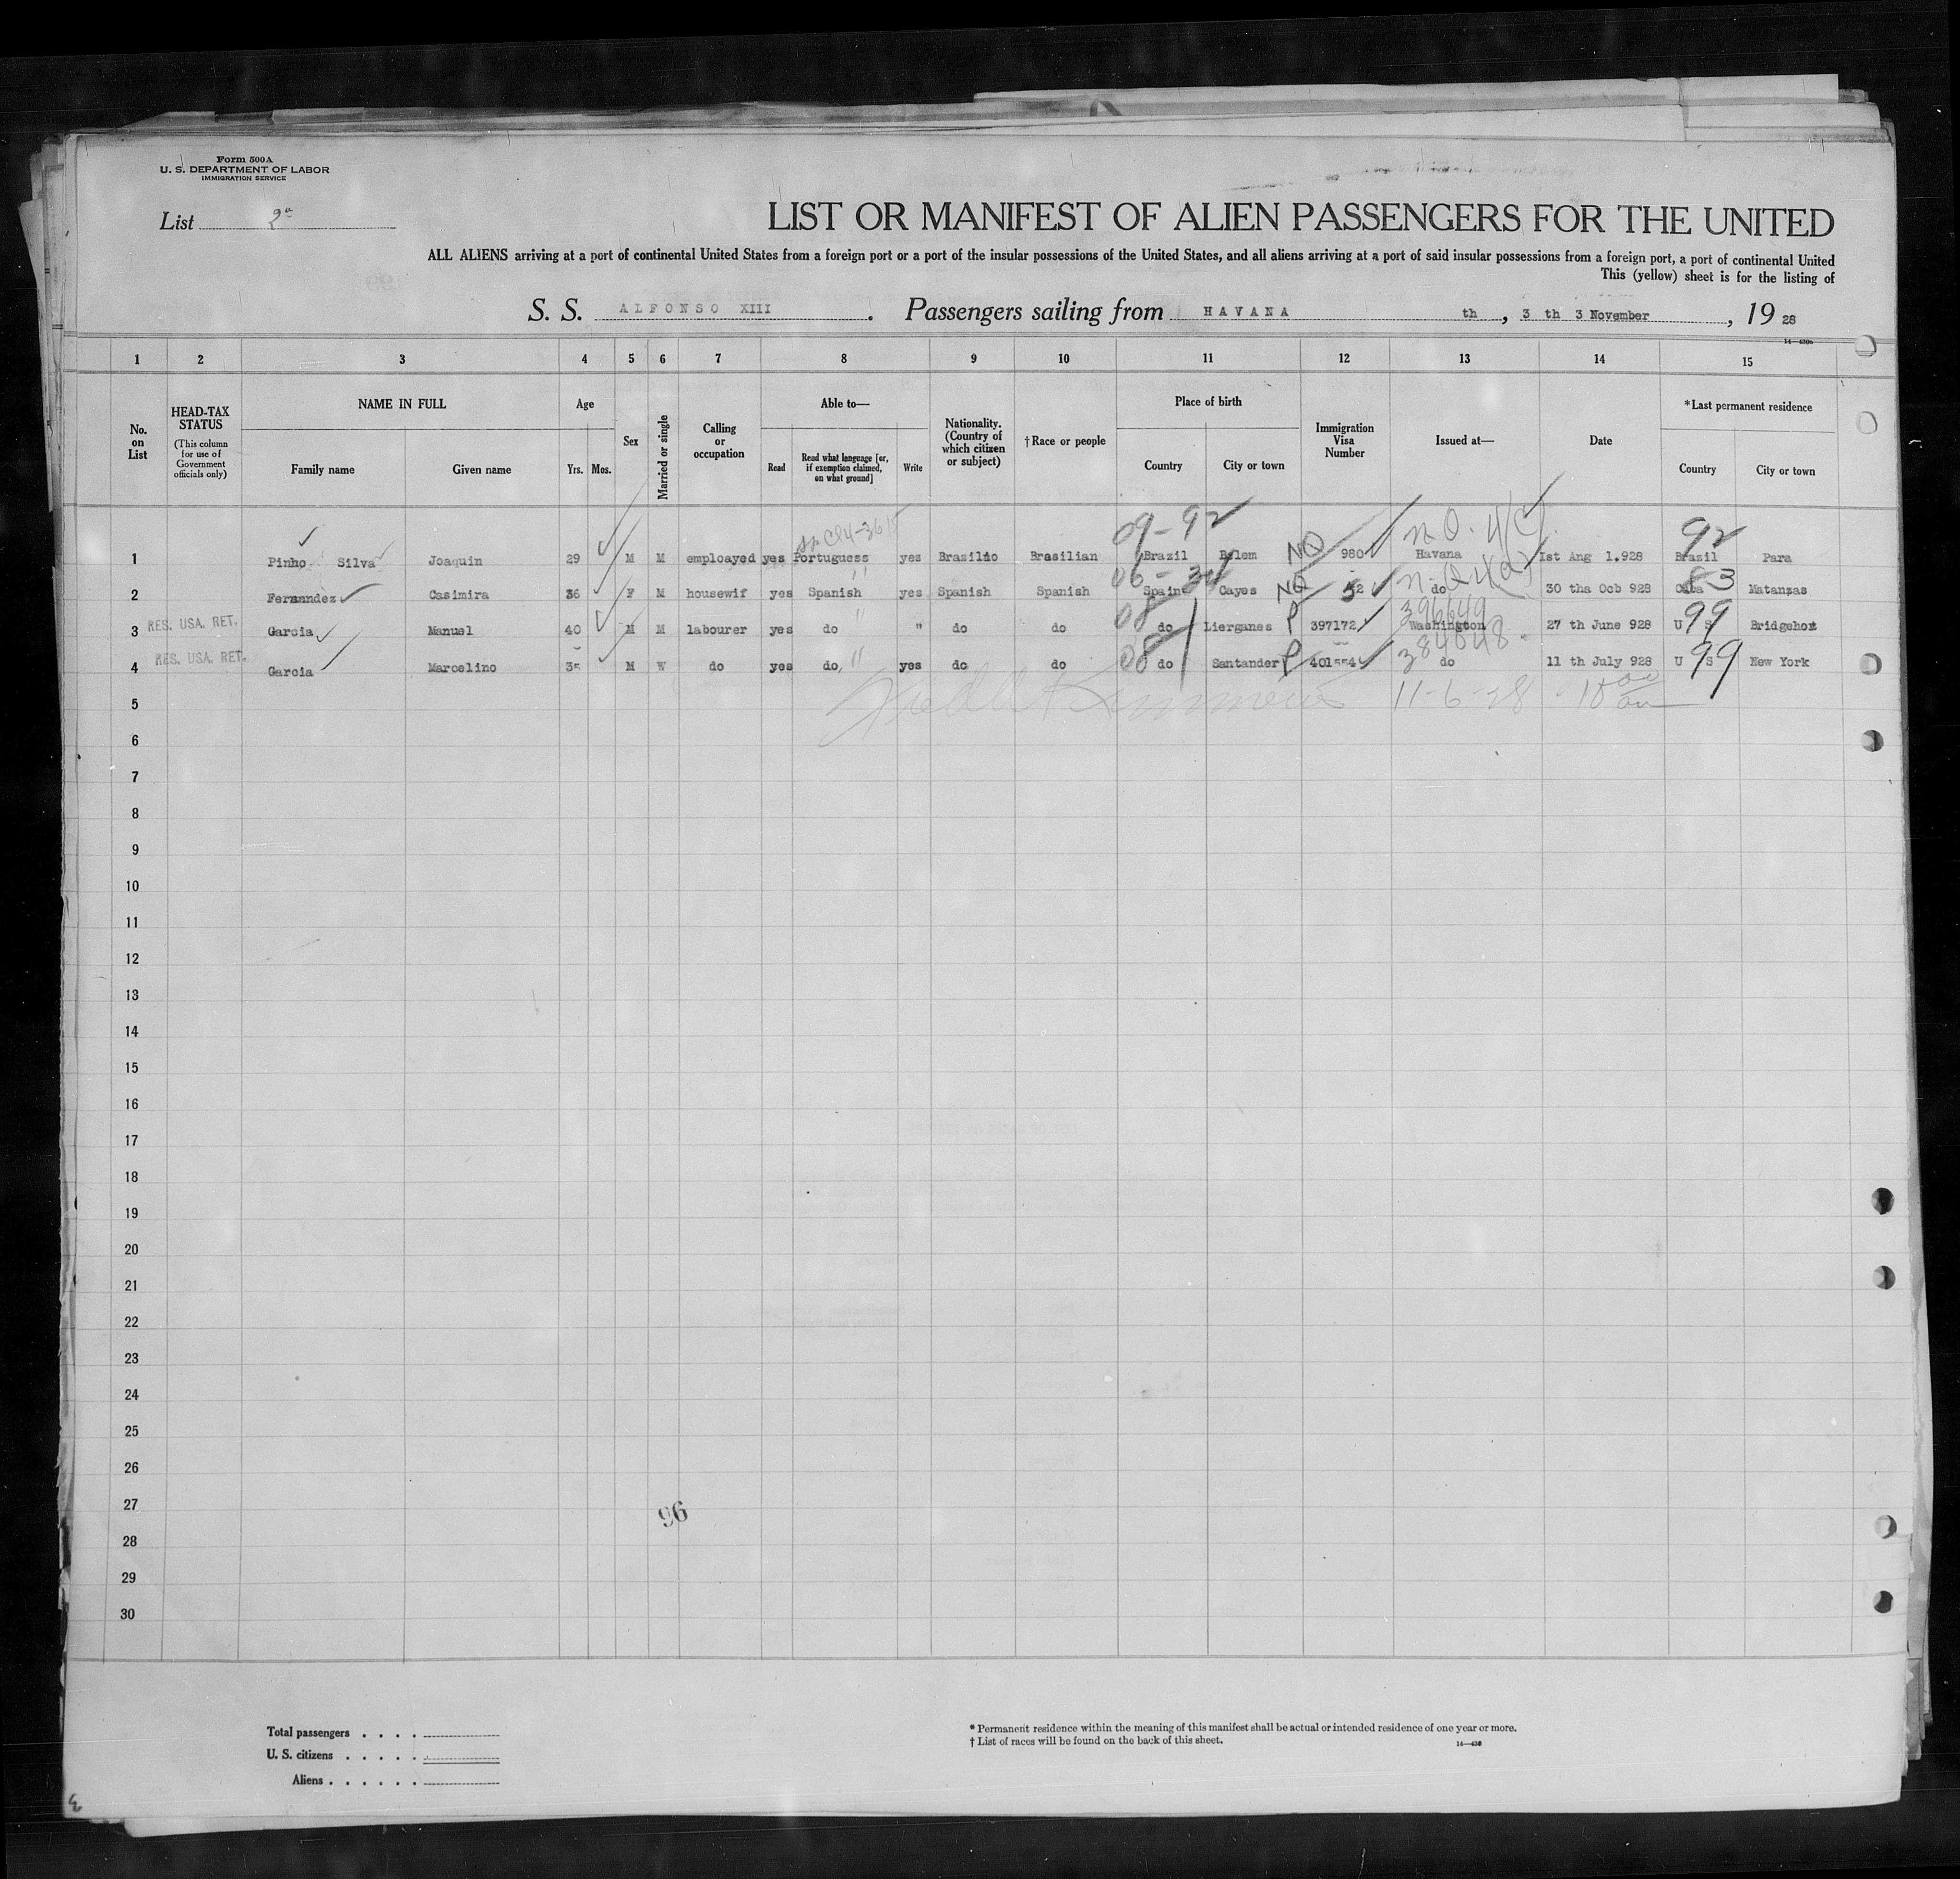 Form 500A
U. S. DEPARTMENT OF LABOR
IMMIGRATION SERVICE
List 2a
LIST OR MANIFEST OF ALIEN PASSENGERS FOR THE UNITED
ALL ALIENS arriving at a port of continental United States from a foreign port or a port of the insular possessions of the United States, and all aliens arriving at a port of said insular possessions from a foreign port, a port of continental United
This (yellow) sheet is for the listing of
S. S. ALFONSO XIII . Passengers sailing from HAVANA th , 3 th 3 November , 19 28
1 2 3 4 5 6 7 8 9 10 11 12 13 14 15
No. on List
HEAD-TAX STATUS (This column for use of Government officials only)
NAME IN FULL Family name Given name
Age Yrs. Mos.
Sex
Married or single
Calling or occupation
Able to— Read Read what language [or, if exemption claimed, on what ground] Write
Nationality. (Country of which citizen or subject)
†Race or people
Place of birth Country City or town
Immigration Visa Number
Issued at—
Date
*Last permanent residence Country City or town
09-92 NQ N.Q. 4(C) 92
1 Pinho Silva Joaquin 29 M M emploayed yes Portuguess yes Brazilño Brasilian Brazil Bylem 980 Havana Ist Ang 1.928 Brazil Para
2 Fernandez Casimira 36 F M housewif yes Spanish yes Spanish Spanish Spain Cayes NQ 52 do 30 ths Ocb 928 Cuba Matanzas
396649
3 RES. USA. RET. Garcia Manuel 40 M M labourer yes do " do do 08 do Lierganes P 397172 Washington 27 th June 928 U S 99 Bridgehot
384648
4 RES. USA. RET. Garcia Marcelino 35 M W do yes do yes do do 08 do Santander P 401554 do 11 th July 928 U S 99 New York
5 11-6-28
6
7
8
9
10
11
12
13
14
15
16
17
18
19
20
21
22
23
24
25
26
27
96
28
29
30
Total passengers . . . .
U. S. citizens . . . . .
Aliens . . . . . .
* Permanent residence within the meaning of this manifest shall be actual or intended residence of one year or more.
† List of races will be found on the back of this sheet.